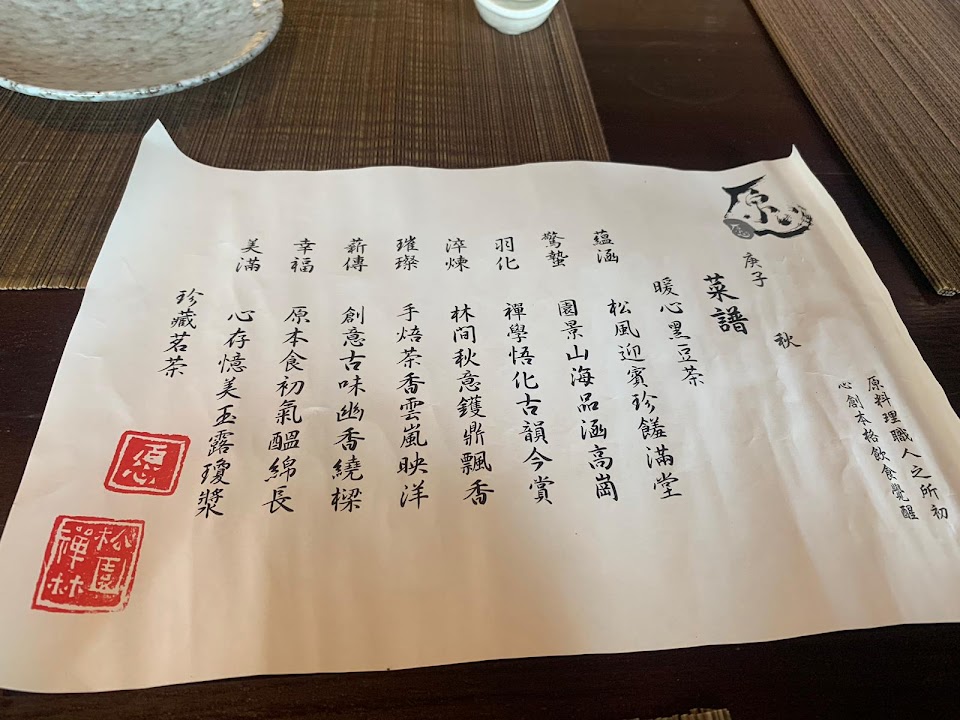 原料理職人之所初
心創本格飲食覺醒
愿
庚子 秋
菜譜
暖心黑豆茶
蘊涵 松風迎賓珍饈滿堂
驚蟄 園景山海品涵高崗
羽化 禪學悟化古韻今賞
淬煉 林間秋意鑊鼎飄香
璀璨 手焙茶香雲嵐映洋
薪傳 創意古味幽香繞樑
幸福 原本食初氣醞綿長
美滿 心存憶美玉露瓊漿
珍藏茗茶
愿
松園
禪林